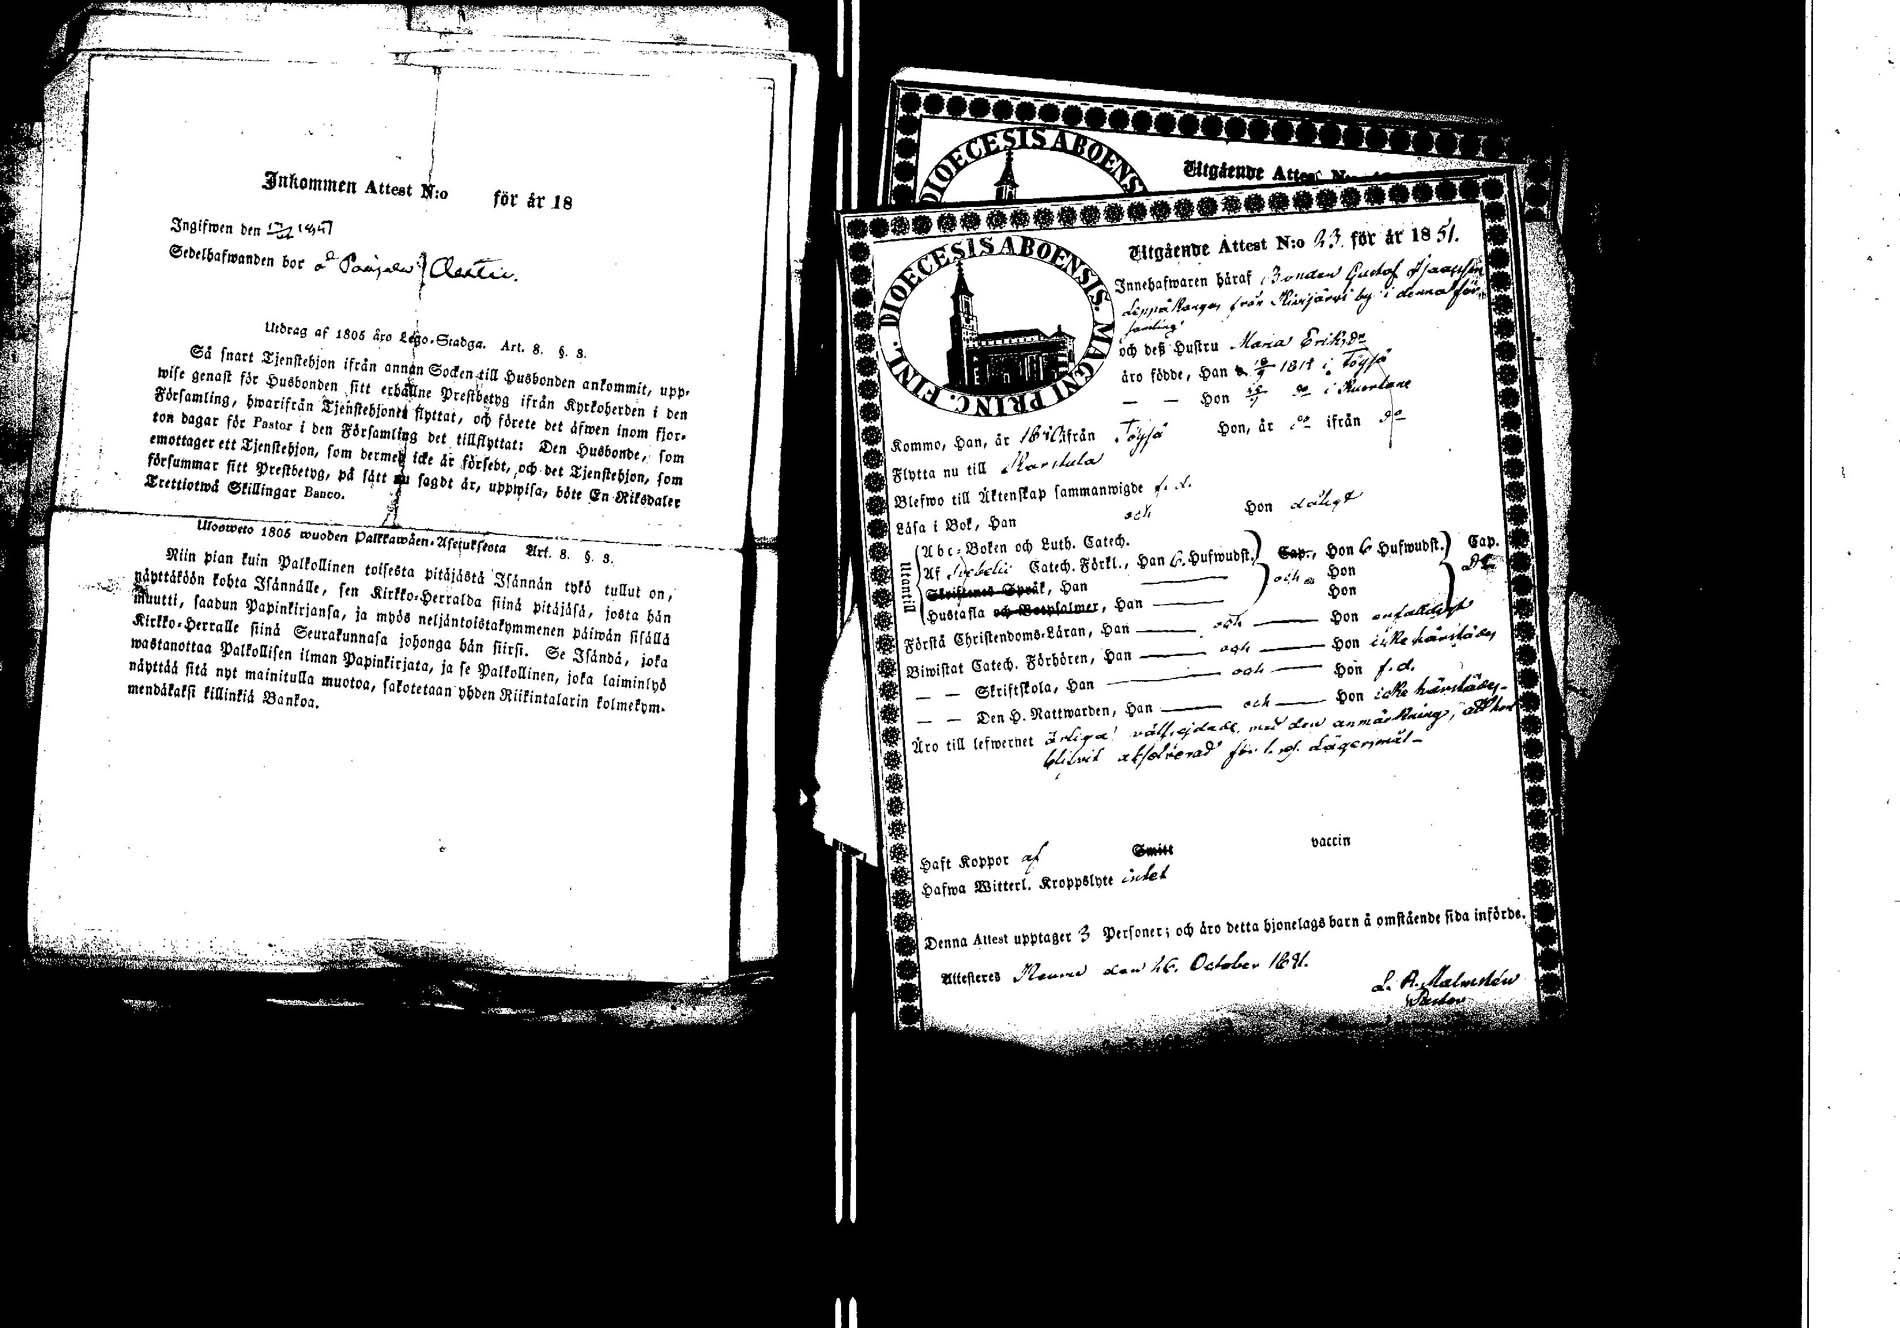 Inkommen Attest N:o för år 18
Ingifwen den
Sedelhafwanden bor
Utdrag af 1805 års Lego-Stadga. Art. 8. §. 3.
Så snart Tjenstehjon ifrån annan Socken till Husbonden ankommit, upp-
wise genast för Husbonden sitt erhållne Prestbetyg ifrån Kyrkoherden i den
Församling, hwarifrån Tjenstehjonet flyttat, och förete det äfwen inom fjor-
ton dagar för Pastor i den Församling det tillflyttat: Den Husbonde, som
emottager ett Tjenstehjon, som dermed icke är försedt, och det Tjenstehjon, som
försummar sitt Prestbetyg, på sätt nu sagdt är, uppwisa, böte En Riksdaler
Trettiotwå Skillingar Banco.
Ulosweto 1805 wuoden Palkkawäen-Asetuksesta Art. 8. §. 3.
Niin pian kuin Palkollinen toisesta pitäjästä Isännän tykö tullut on,
näyttäköön kohta Isännälle, sen Kirkko-Herralda siinä pitäjäsä, josta hän
muutti, saadun Papinkirjansa, ja myös neljäntoistakymmenen päiwän sisällä
Kirkko-Herralle siinä Seurakunnasa johonga hän siirsi. Se Isändä, joka
wastanottaa Palkollisen ilman Papinkirjata, ja se Palkollinen, joka laiminlyö
näyttää sitä nyt mainitulla muotoa, sakotetaan yhden Riikintalarin kolmekym-
mendäkaksi killinkiä Bankoa.
DIOECESIS ABOENS
Utgående Attest N:o
DIOECESIS ABOENSIS. MAGNI PRINC. FINL.
Utgående Attest N:o 23. för år 1851.
Innehafwaren häraf Bonden Gustaf
från Kivijärvi by i denna för-
samling
och deß Hustru Maria Eriksdr
äro födde, Han 1814 i Töysä
— — Hon i Kuortane
Kommo, Han, år ifrån Töysä Hon, år do ifrån do
Flytta nu till Karstula
Blefwo till Äktenskap sammanwigde f. d.
Läsa i Bok, Han och Hon dåligt
Utantill
Abc-Boken och Luth. Catech.
Af Svebelii Catech. Förkl., Han 6. Hufwudst. Cap., Hon 6 Hufwudst. Cap.
Skriftenes Språk, Han och Hon
Hustafla och Botpsalmer, Han Hon
Förstå Christendoms-Läran, Han — och — Hon enfaldigt
Biwistat Catech. Förhören, Han — och — Hon icke härstädes
— — Skriftskola, Han — och — Hon f. d.
— — Den H. Nattwarden, Han — och — Hon icke härstädes
Äro till lefwernet ärliga med den anmärkning, att hon
blifvit absolverad för l. w. lägersmål
Haft Koppor af Smitt vaccin
Hafwa Witterl. Kroppslyte intet
Denna Attest upptager 3 Personer; och äro detta hjonelags barn å omstående sida införde.
Attesteras den 26. October 1851.
Malmstén
Pastor